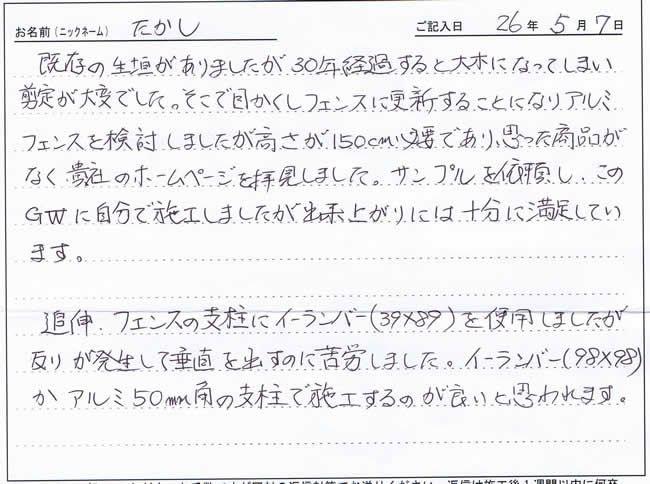 お名前(ニックネーム) たかし ご記入日 26年 5月 7日
既存の生垣がありましたが 30年経過すると大木になってしまい
剪定が大変でした。そこで目かくしフェンスに更新することになりアルミ
フェンスを検討しましたが高さが150cm必要であり、思った商品が
なく 貴社のホームページを拝見しました。サンプルを依頼し、この
GWに自分で施工しましたが出来上がりには十分に満足してい
ます。
追伸. フェンスの支柱にイーランバー(39×89)を使用しましたが
反りが発生して垂直を出すのに苦労しました。イーランバー(98×98)
か アルミ50mm角の支柱で施工するのが良いと思われます。